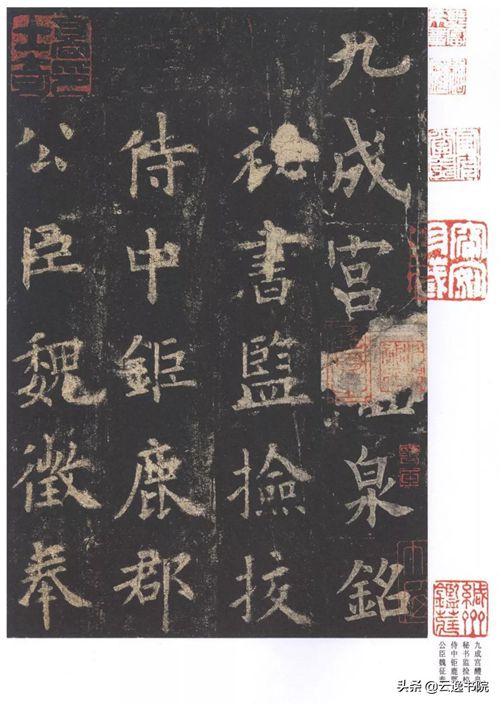 九成宮泉銘
祕書監撿挍
侍中鉅鹿郡
公臣魏徵奉
九成宫醴泉
秘书监检
侍中钜鹿郡
公臣魏征奉
头条 @云逸书院